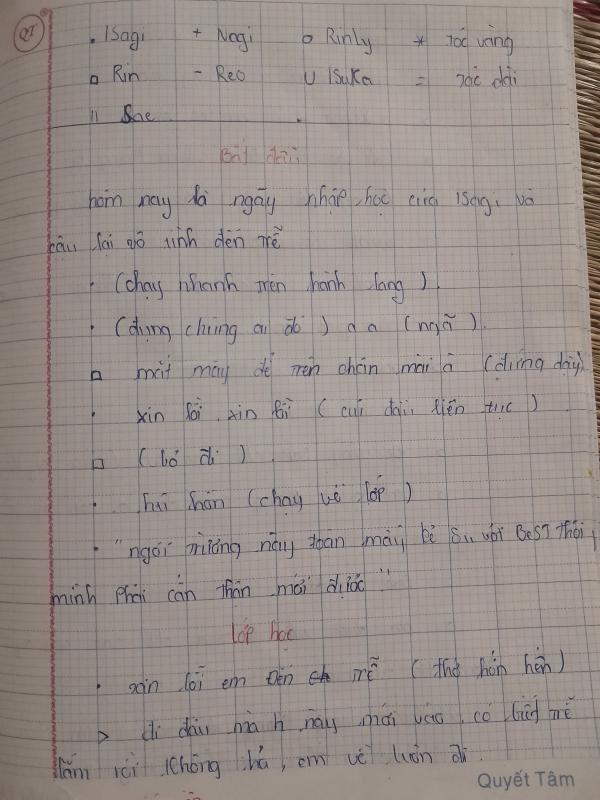 QT
. ISagi + Nagi o Rinly * tóc vàng
□ Rin - Reo U ISuKa = tóc dài
" Sae
Bắt đầu
hôm nay là ngày nhập học của ISagi và
cậu lại vô tình đến trễ
. (chạy nhanh trên hành lang)
. (đụng chúng ai đó) a a (ngã)
□ mắt mày để trên chân mài à (đứng dậy)
. xin lỗi xin lỗi (cúi đầu liên tục)
□ (bỏ đi)
. hú hồn (chạy về lớp)
. "ngôi trường này toàn mấy bé Su với BeST thôi,
mình phải cẩn thận mới được"
lớp học
. xin lỗi em đến trễ (thở hổn hển)
> đi đâu mà h này mới vào, có biết trễ
lắm rồi không hả, em về luôn đi.
Quyết Tâm